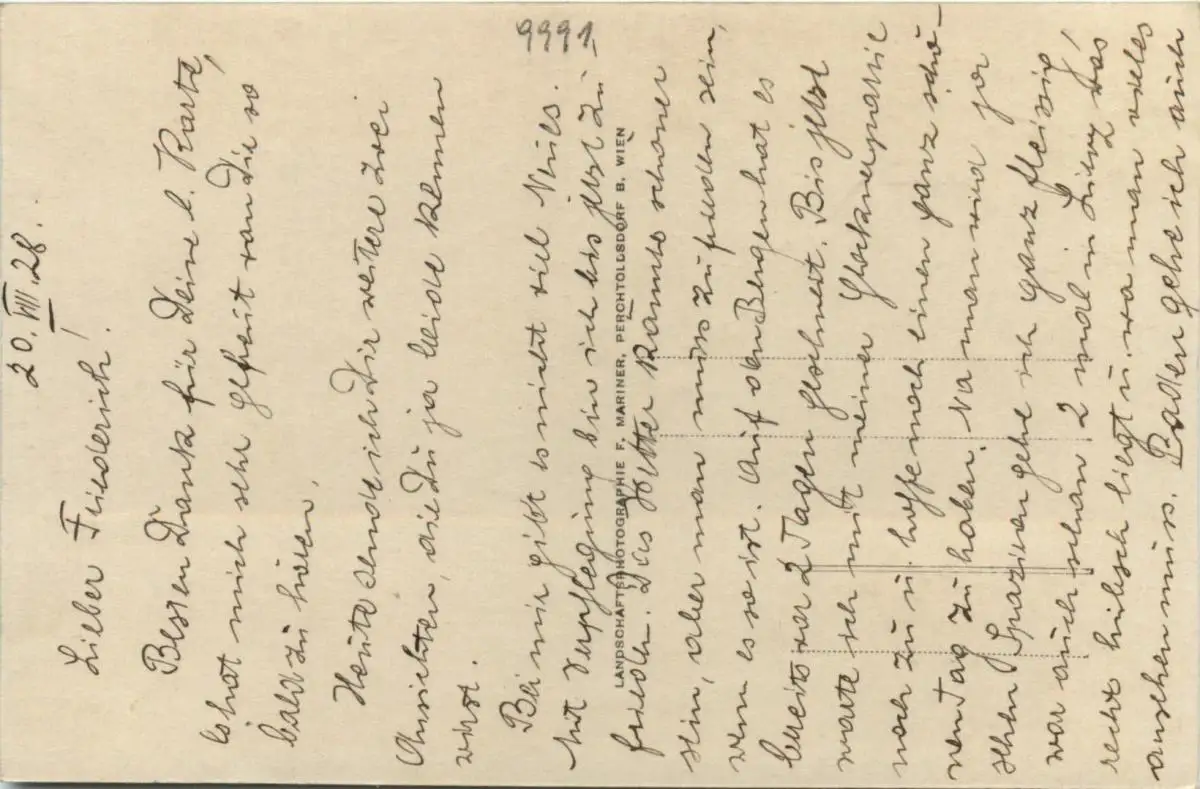 9991
20. VIII. 28.
Lieber Friederich!
Besten Dank für Deine l. Karte,
es hat mich sehr gefreut von Dir so
bald zu hören.
Heute sende ich Dir weitere zwei
Ansichten, die Du ja leicht kennen
wirst.
Bei mir gibt es nicht viel Neues.
Mit Verpflegung bin ich bis jetzt zu-
frieden. Das Wetter könnte schöner
sein, aber man muss zufrieden sein,
wenn es so ist. Auf den Bergen hat es
bereits vor 2 Tagen geschneit. Bis jetzt
warte ich mit meiner Glocknerpartie
noch zu u. hoffe noch einen ganz schö-
nen Tag zu haben. Na man wird ja
sehen. Spazieren gehe ich ganz fleissig,
war auch schon 2 mal in Lienz das
recht hübsch liegt u. wo man vieles
ansehen muss. Baden gehe ich auch
LANDSCHAFTSPHOTOGRAPHIE F. MARINER, PERCHTOLDSDORF B. WIEN